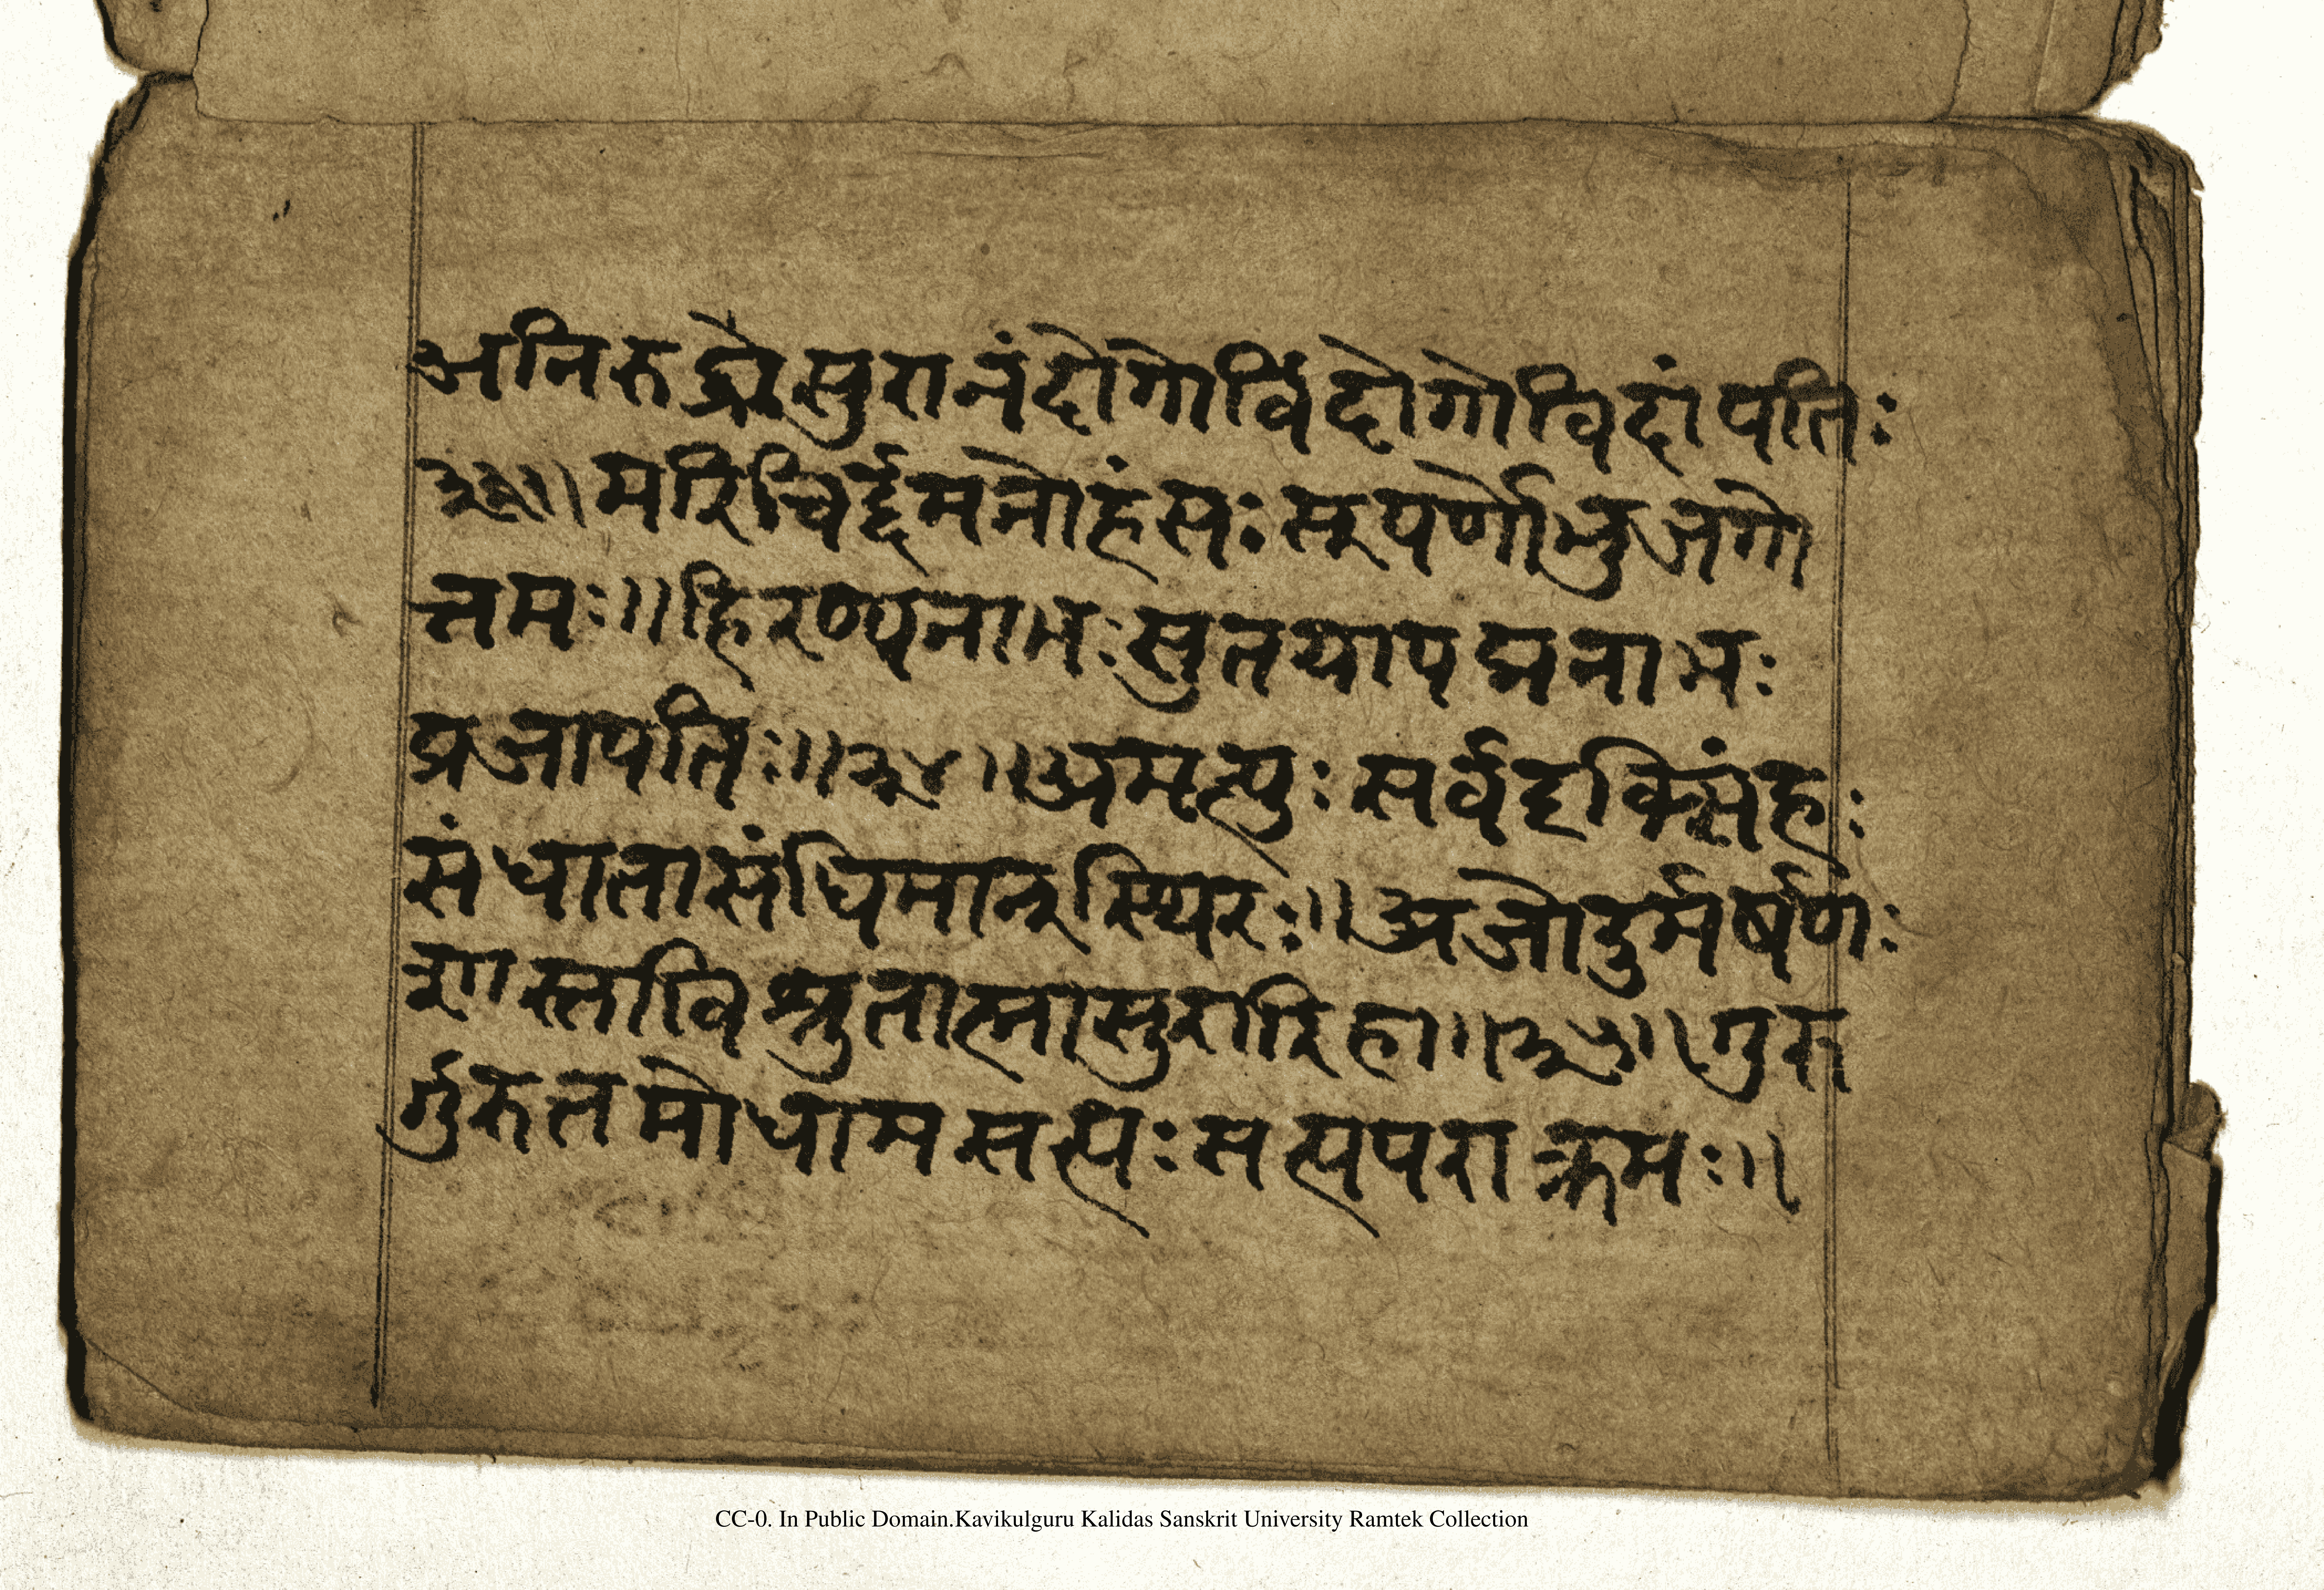 अनिरुद्धोसुरानंदोगोविंदोगोविदांपतिः
३३॥मरिचिर्द्दमनोहंसःसूपर्णोभुजगो
त्तमः॥हिरण्यनाभःसुतयापद्मनाभः
प्रजापतिः॥३४॥अमृत्युःसर्वदृक्सिंहः
संधातासंधिमान्स्थिरः॥अजोदुर्मर्षणः
शास्तविश्रुतात्मासुरारिहा॥३५॥गुरु
र्गुरुतमोधामसत्यःसत्यपराक्रमः॥
CC-0. In Public Domain.Kavikulguru Kalidas Sanskrit University Ramtek Collection